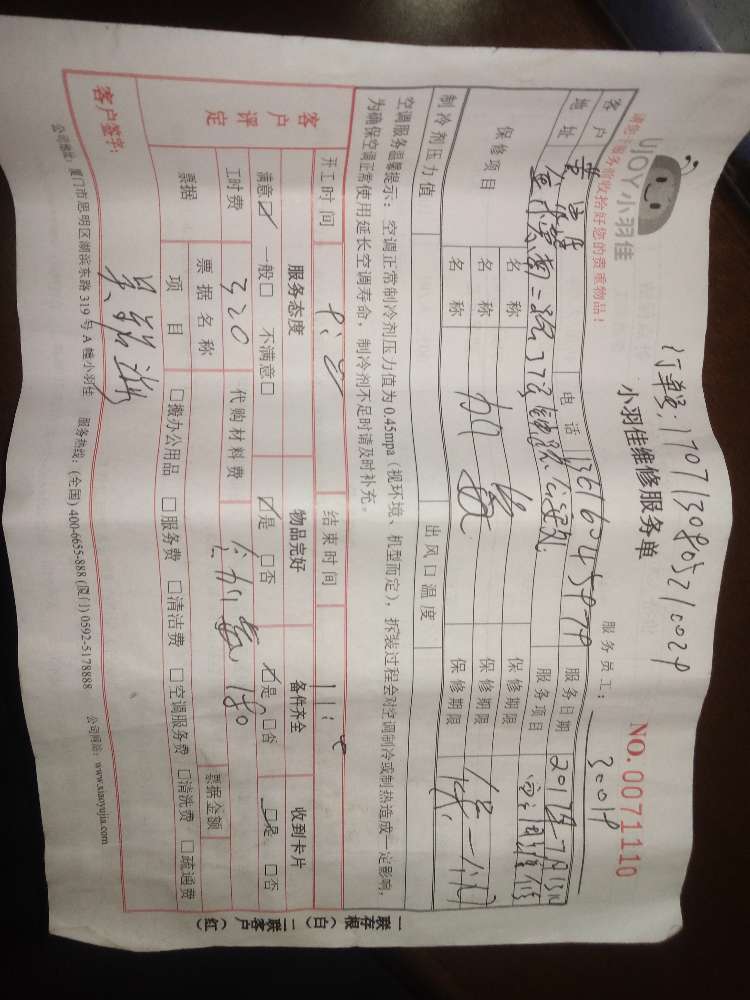 UJOY小羽佳
请您 服务前收拾好您的贵重物品！
订单号:170713080521002P
小羽佳维修服务单
NO.0071110
服务员工： 3001P
客户 电话 服务日期
地址 服务项目 空调维修
保修项目 名称 保修期限
名称 加氨 保修期限 保一个月
名称 保修期限
制冷剂压力值 出风口温度
空调服务温馨提示：空调正常制冷剂压力值为0.45mpa（视环境、机型而定），拆装过程会对空调制冷或制热造成一定影响，
为确保空调正常使用延长空调寿命，制冷剂不足时请及时补充。
客户评定
开工时间 结束时间
服务态度 物品完好 备件齐全 收到卡片
满意☑ 一般□ 不满意□ ☑是 □否 ☑是 □否 ☑是 □否
工时费 320 代购材料费 180
票据 票据名称 票据金额
项目 □搬办公用品 □服务费 □清洁费 □空调服务费 □清洗费 □疏通费
客户签字：
公司地址：厦门市思明区湖滨东路319号A幢小羽佳 服务热线：(全国) 400-6655-888 (厦门) 0592-5178888 公司网站：www.xiaoyujia.com
一联存根（白）二联客户（红）